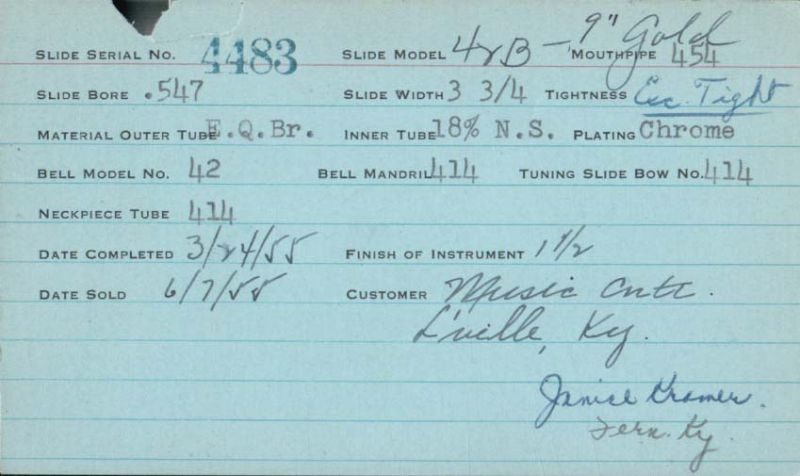 SLIDE SERIAL NO. 4483 SLIDE MODEL 42B - 9" Gold MOUTHPIPE 454
SLIDE BORE .547 SLIDE WIDTH 3 3/4 TIGHTNESS Exc. Tight
MATERIAL OUTER TUBE E.Q.Br. INNER TUBE 18% N.S. PLATING Chrome
BELL MODEL NO. 42 BELL MANDRIL 414 TUNING SLIDE BOW NO. 414
NECKPIECE TUBE 414
DATE COMPLETED 3/24/55 FINISH OF INSTRUMENT 1 1/2
DATE SOLD 6/7/55 CUSTOMER Music Cntr.
L'ville, Ky.
Janice Kramer.
Fern. Ky.